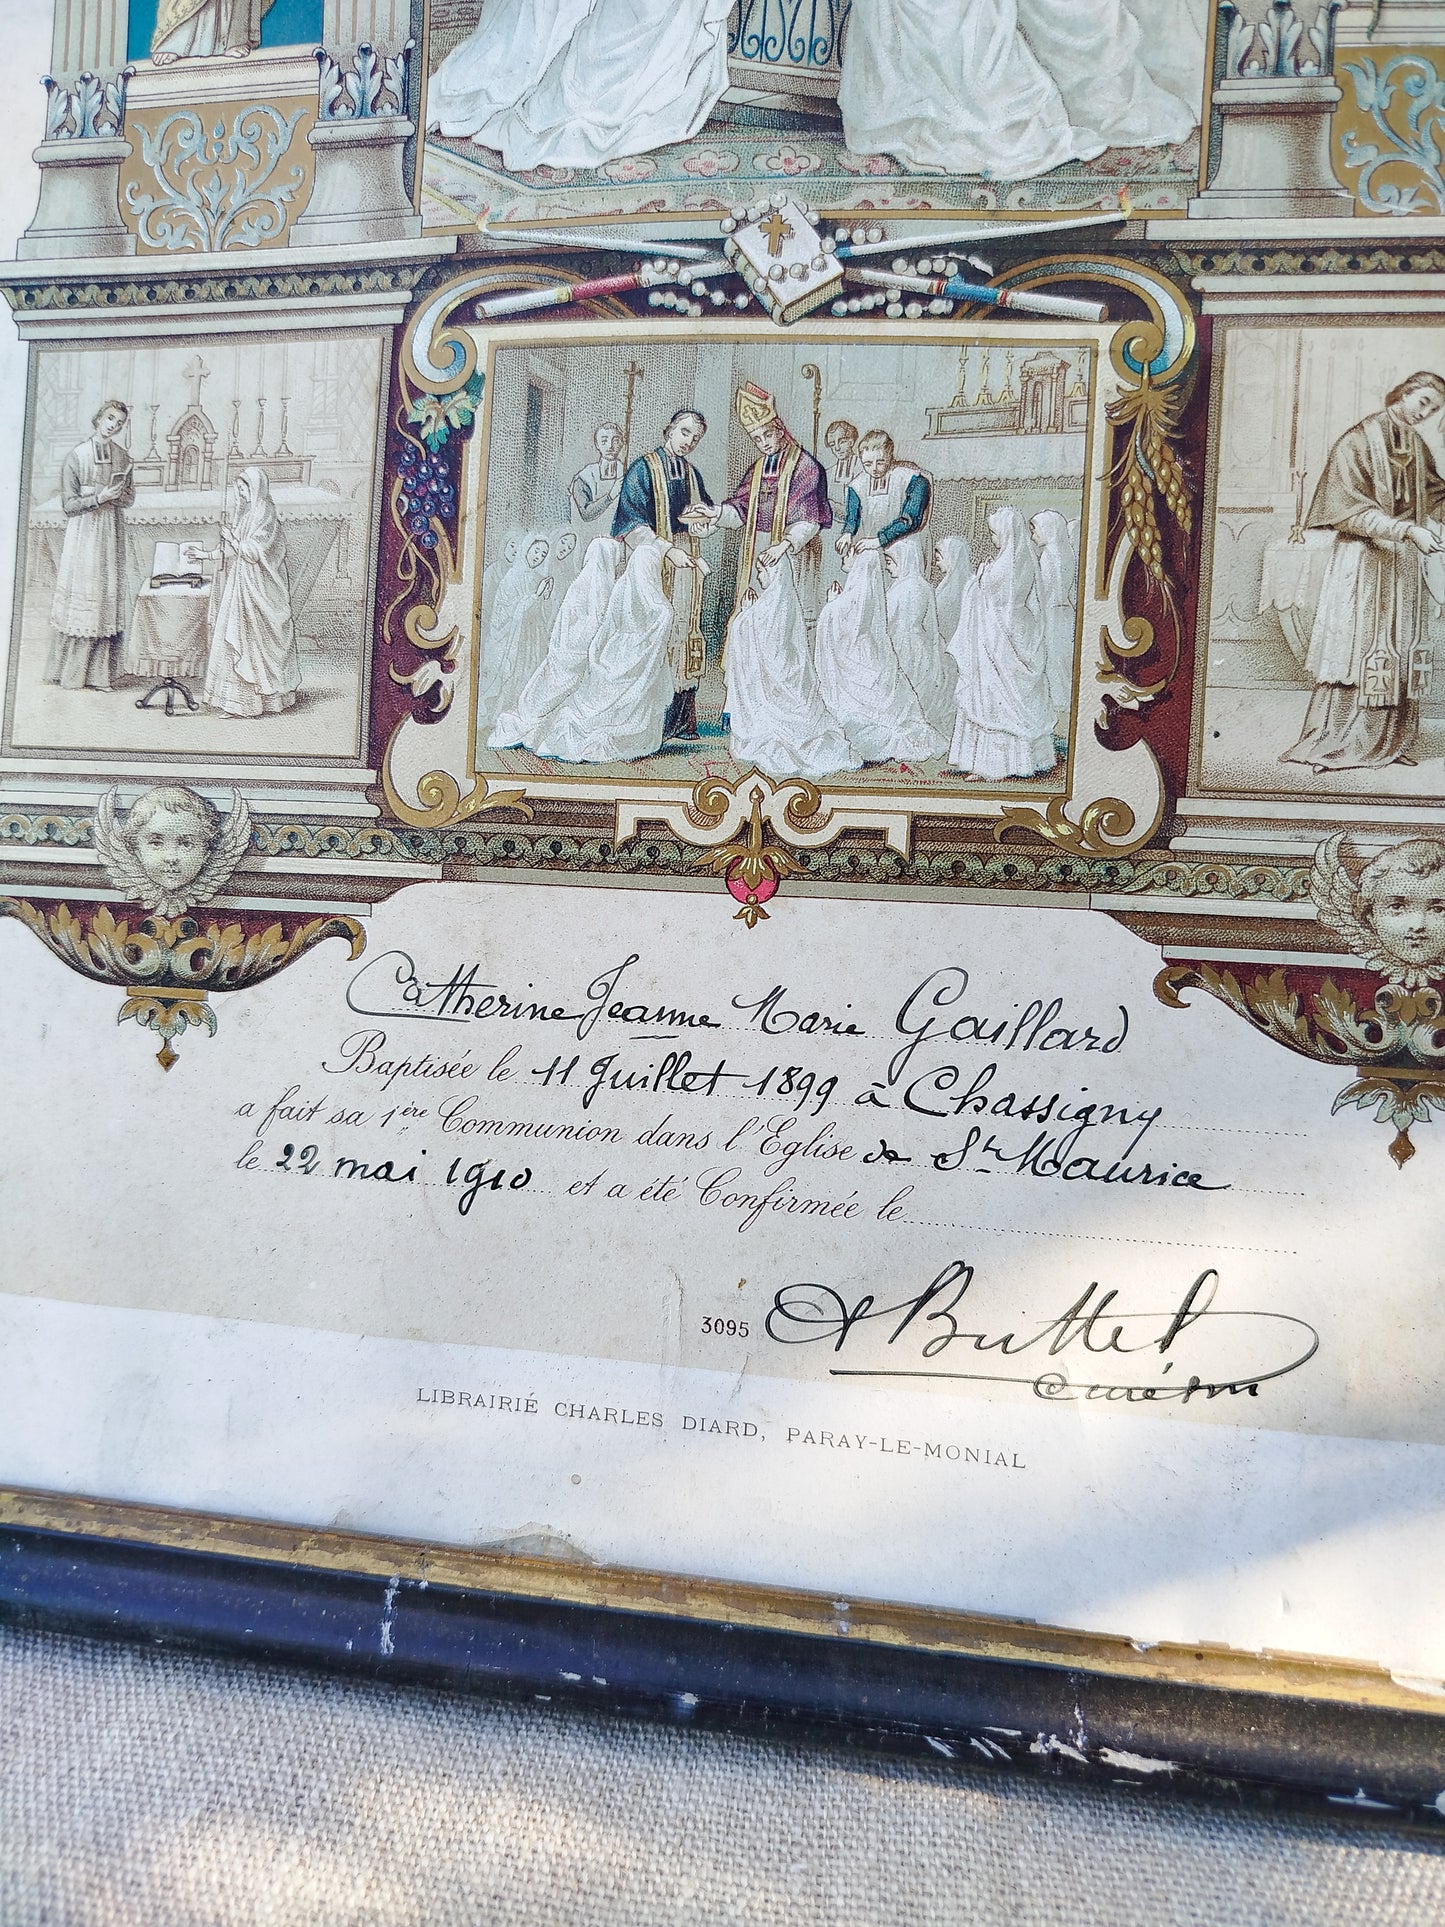 Catherine Jeanne Marie Gaillard
Baptisée le 11 Juillet 1899 à Chassigny
a fait sa 1ère Communion dans l'Eglise de St Maurice
le 22 mai 1910 et a été Confirmée le
3095 Buttet
curé
LIBRAIRIE CHARLES DIARD, PARAY-LE-MONIAL